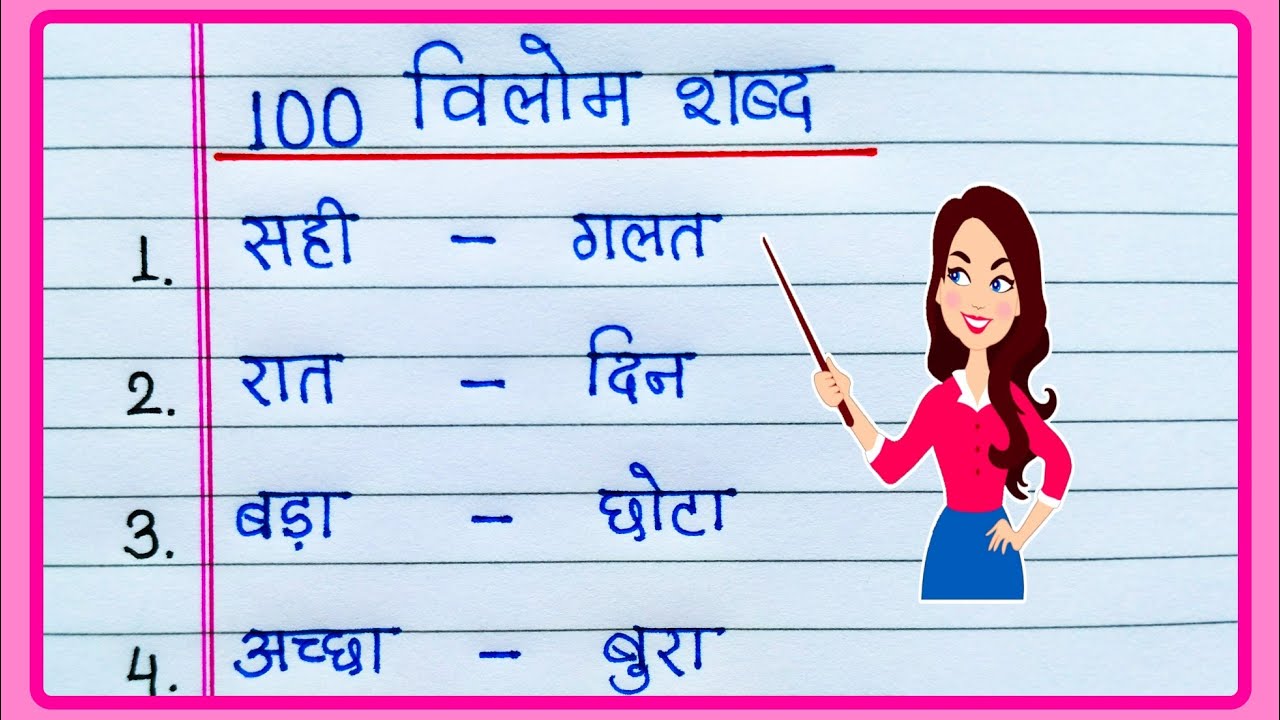 100 विलोम शब्द
1. सही - गलत
2. रात - दिन
3. बड़ा - छोटा
4. अच्छा - बुरा